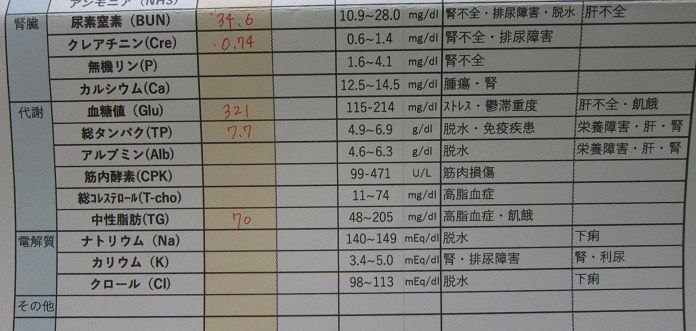 アンモニア (NH3)
腎臓 尿素窒素 (BUN) 34.6 10.9~28.0 mg/dl 腎不全・排尿障害・脱水 肝不全
クレアチニン(Cre) 0.74 0.6~1.4 mg/dl 腎不全・排尿障害
無機リン(P) 1.6~4.1 mg/dl 腎不全
カルシウム(Ca) 12.5~14.5 mg/dl 腫瘍・腎
代謝 血糖値 (Glu) 321 115-214 mg/dl ストレス・鬱滞重度 肝不全・飢餓
総タンパク(TP) 7.7 4.9~6.9 g/dl 脱水・免疫疾患 栄養障害・肝・腎
アルブミン(Alb) 4.6~6.3 g/dl 脱水 栄養障害・肝・腎
筋内酵素(CPK) 99-471 U/L 筋肉損傷
総コレステロール(T-cho) 11~74 mg/dl 高脂血症
中性脂肪(TG) 70 48~205 mg/dl 高脂血症・飢餓
電解質 ナトリウム (Na) 140~149 mEq/dl 脱水 下痢
カリウム (K) 3.4~5.0 mEq/dl 腎・排尿障害 腎・利尿
クロール (Cl) 98~113 mEq/dl 脱水 下痢
その他